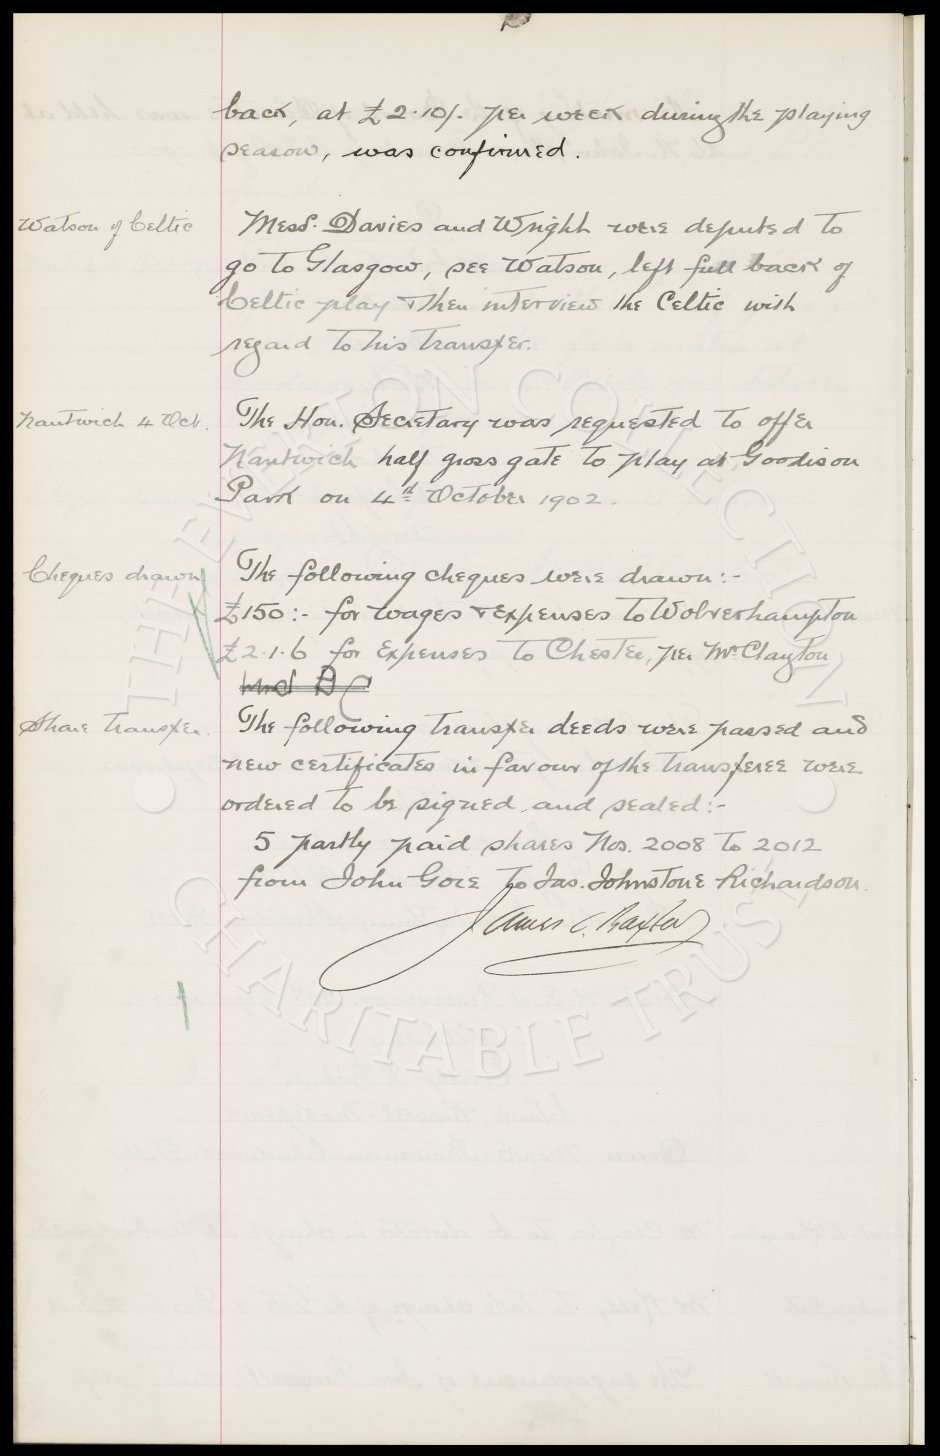 back, at £2.10/- per week during the playing
season, was confirmed.
Watson of Celtic
Messs. Davies and Wright were deputed to
go to Glasgow, see Watson, left full back of
Celtic play & then interview the Celtic with
regard to his transfer.
Nantwich 4 Oct.
The Hon. Secretary was requested to offer
Nantwich half gross gate to play at Goodison
Park on 4th October 1902.
Cheques drawn
The following cheques were drawn:-
£150:- for wages & expenses to Wolverhampton
£2.1.6 for Expenses to Chester, per Mr Clayton
Share transfer.
The following transfer deeds were passed and
new certificates in favour of the transferee were
ordered to be signed and sealed:-
5 partly paid shares Nos. 2008 to 2012
from John Gore to Jas. Johnstone Richardson.
James C. Baxter
THE EVERTON COLLECTION
CHARITABLE TRUST